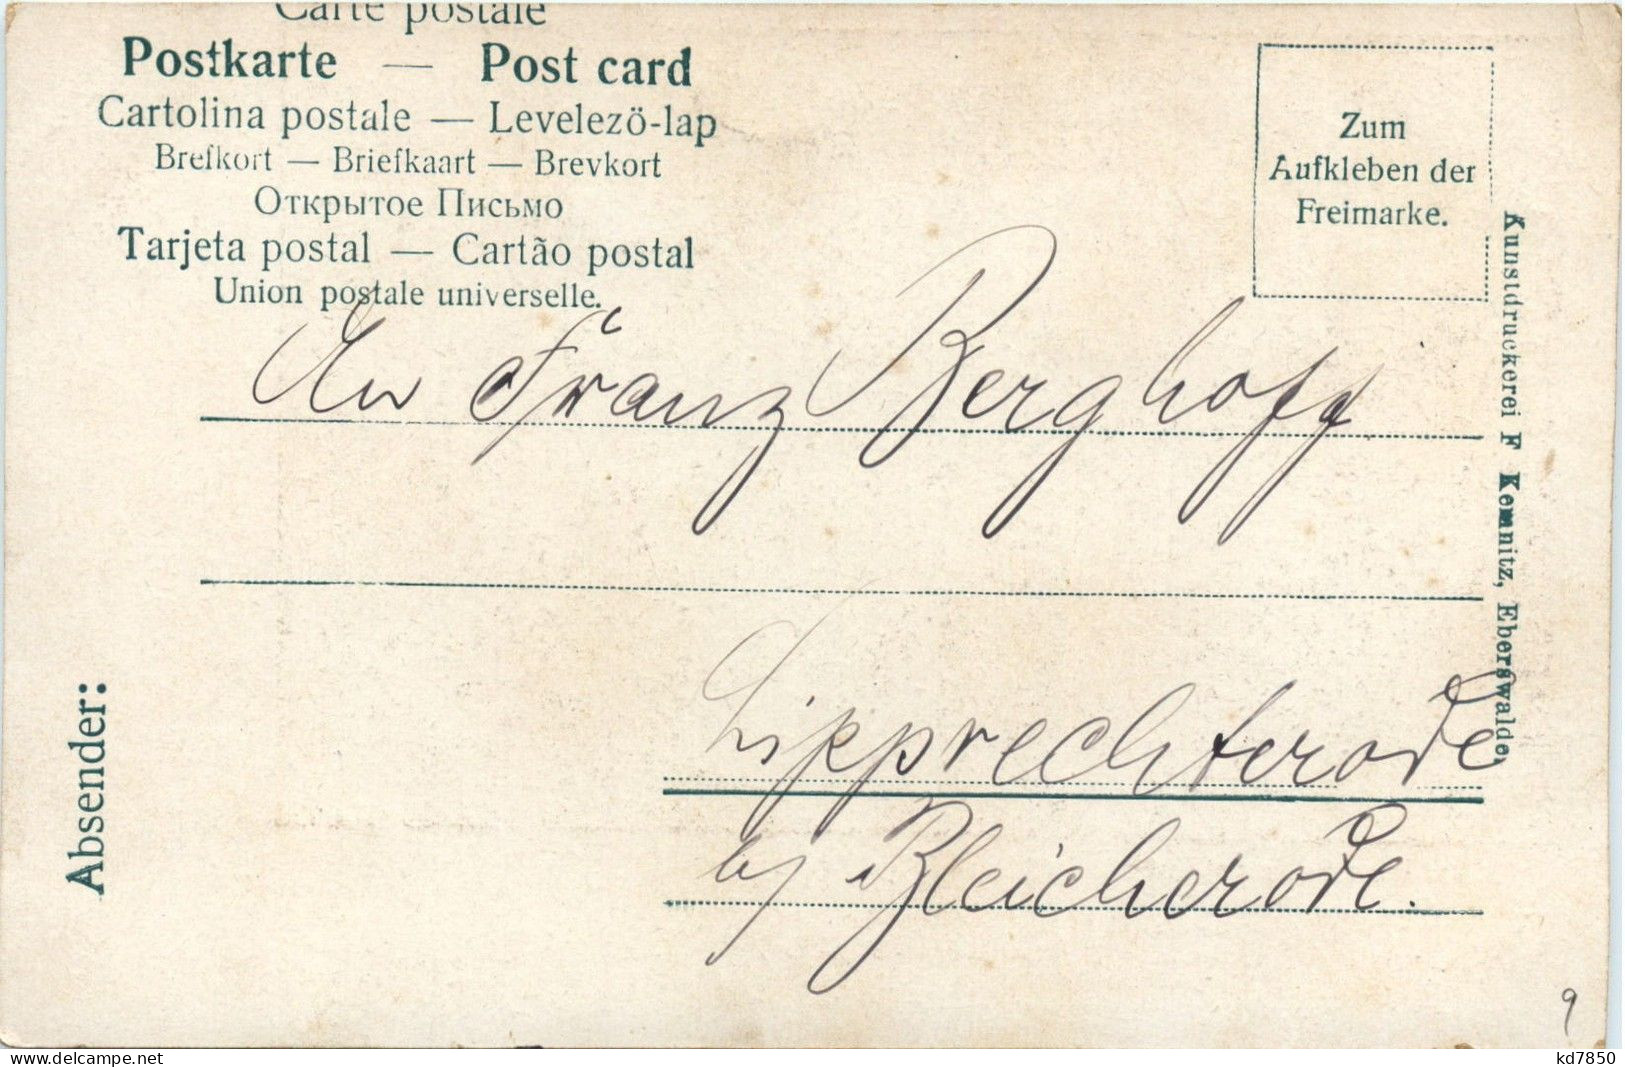 Carte postale
Postkarte — Post card
Cartolina postale — Levelezö-lap
Brefkort — Briefkaart — Brevkort
Открытое Письмо
Tarjeta postal — Cartão postal
Union postale universelle.
Zum
Aufkleben der
Freimarke.
Kunstdruckerei F Kemnitz, Eberswalde,
An Franz Berghoff
Absender:
Lipprechterode
by Bleicherode.
9
delcampe.net
kd7850